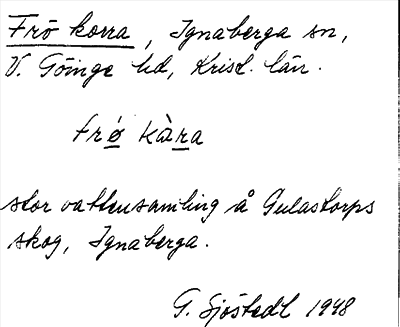 Frö korra, Ignaberga sn,
V. Göinge hd, Krist. län.
frö kàra
stor vattensamling å Gulastorps
skog, Ignaberga.
G. Sjöstedt 1948